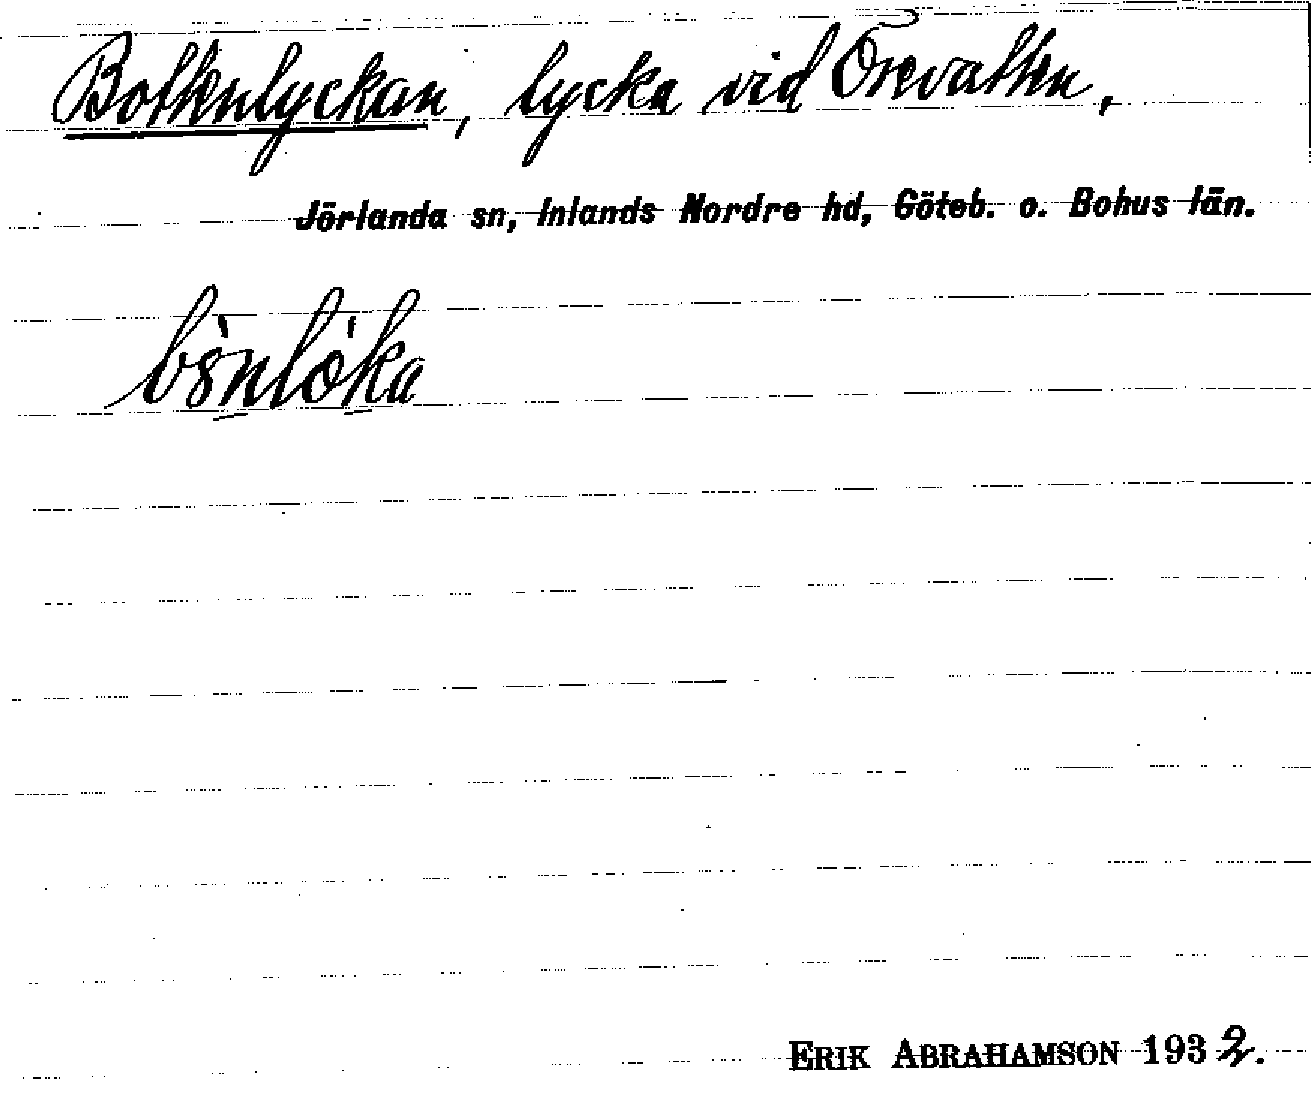 Bottenlyckan, lycka vid Öxevatten,
Jörlanda sn, Inlands Nordre hd, Göteb. o. Bohus län.
ERIK ABRAHAMSON 1932.